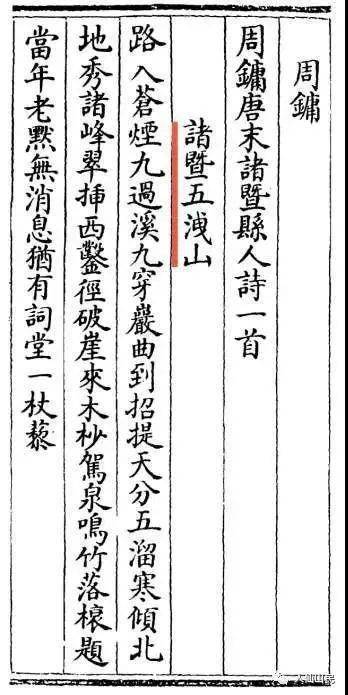 周鏞
周鏞唐末諸暨縣人詩一首
諸暨五洩山
路入蒼煙九過溪九穿巖曲到招提天分五溜寒傾北
地秀諸峰翠插西鑿徑破崖來木杪駕泉鳴竹落榱題
當年老默無消息猶有詞堂一杖藜